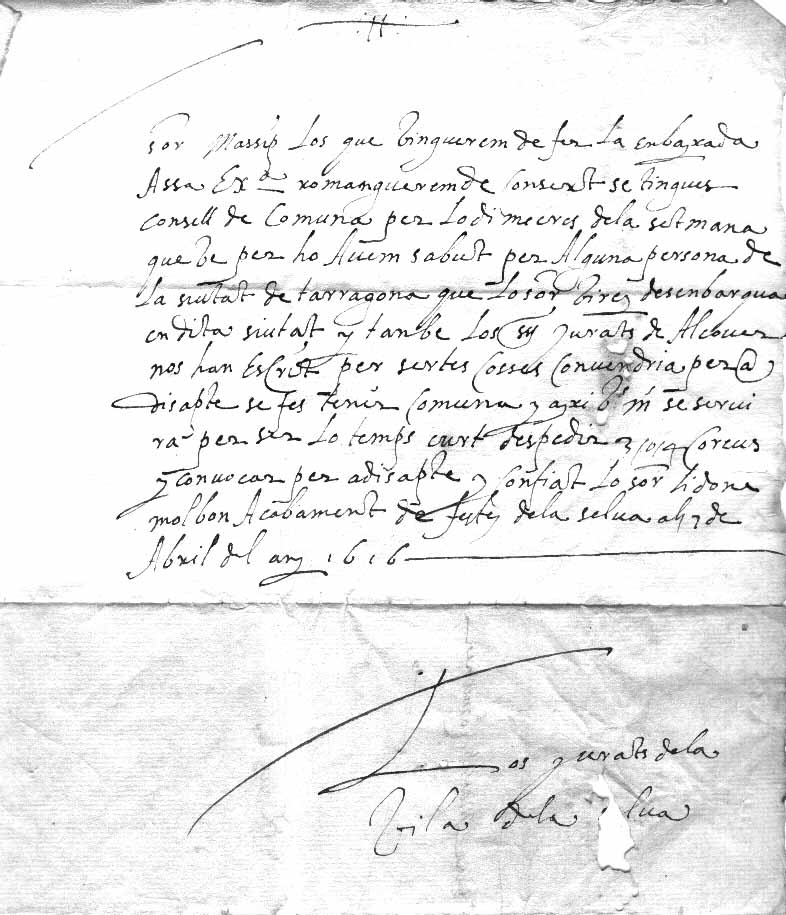 Sor Massip Los que vinguerem de fer La enbaxada
Assa Exa romanguerem de consert se tingues
consell de Comuna per Lo dimecres de la setmana
que ve per ho Avem sabut per Alguna persona de
La siutat de tarragona que Lo sor Virey desenbarqua
en dita siutat y tanbe Los jurats de Alcover
nos han Escrit per sertes Cosses Convendria per a
disapte se fes tenir Comuna y axi vs m se servi
ra per ser Lo temps curt despedir Correus
y convocar per a disapte y confiat Lo sor li done
mol bon Acabament de festes de la selva als 7 de
Abril del any 1616
Los jurats de la
Vila de la lva